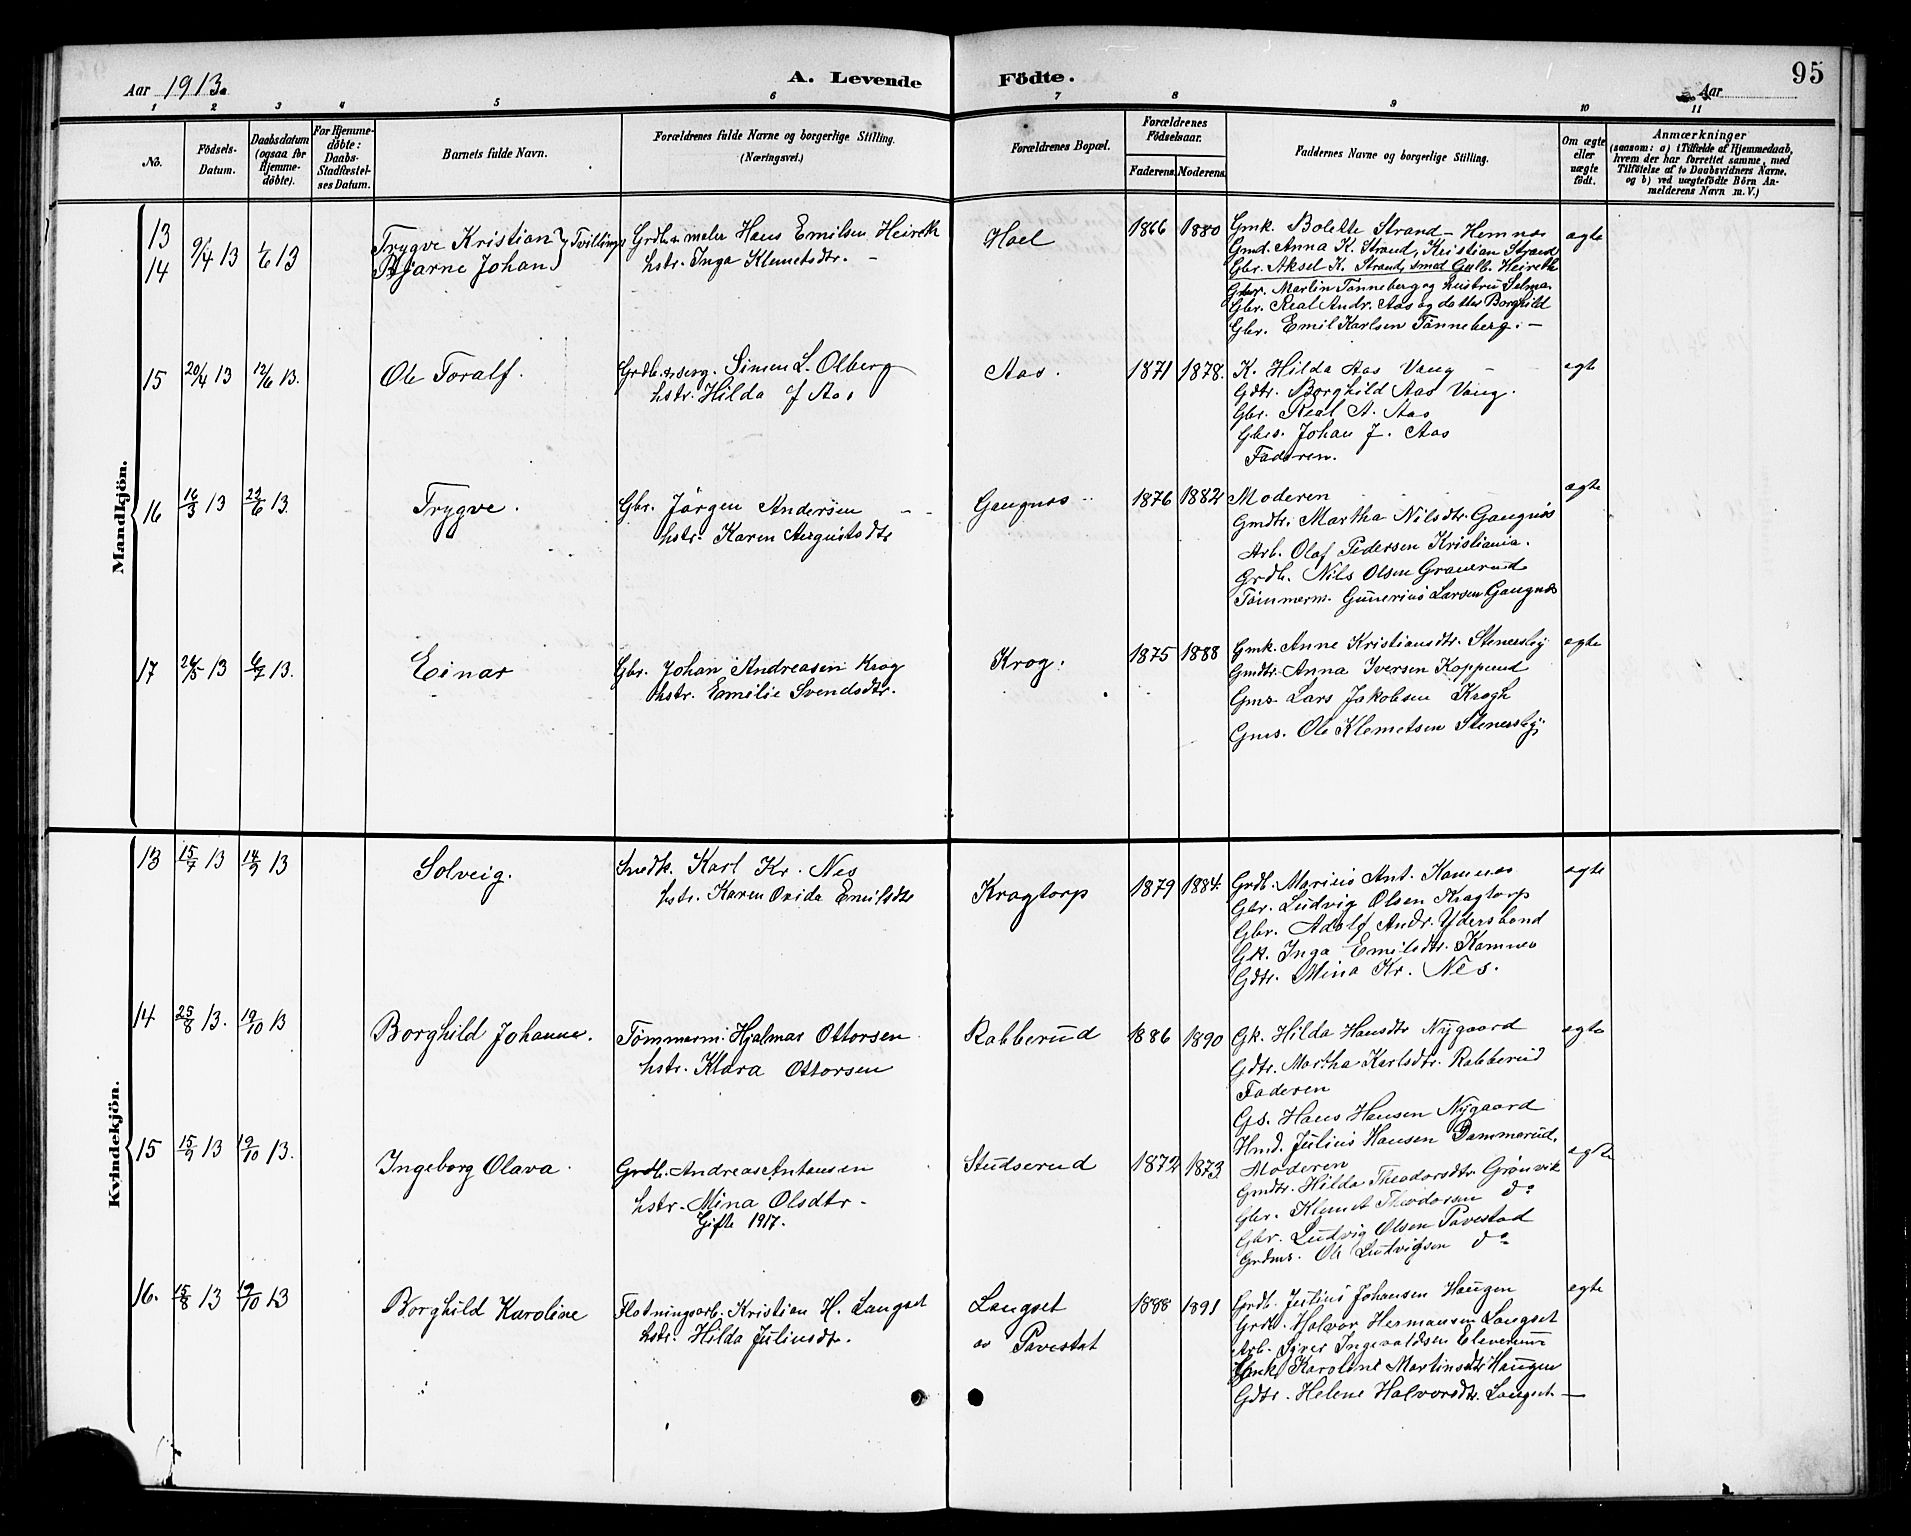 Aar 1913.
A. Levende Födte.
95
Aar
1 2 3 4 5 6 7 8 9 10 11
No.
Födsels-Datum.
Daabsdatum (ogsaa for Hjemmedöbte).
For Hjemmedöbte: Daabs-Stadfæstelses Datum.
Barnets fulde Navn.
Forældrenes fulde Navne og borgerlige Stilling.
(Næringsvei.)
Forældrenes Bopæl.
Forældrenes Födselsaar.
Faderens. Moderens.
Faddernes Navne og borgerlige Stilling.
Om ægte eller uægte födt.
Anmærkninger
(saasom: a) i Tilfælde af Hjemmedaab,
hvem der har forrettet samme, med
Tilföielse af to Daabsvidners Navne,
og b) ved uægtefödte Börn An-
melderens Navn m. V.)
Mandkjön.
13
14
9/4 13 1/6 13
Trygve Kristian } Tvillinge
Bjarne Johan
Grdb. & maler Hans Emilsen Heireth
hstr. Inga Klemetsdtr. -
Hoel
1866 1880
Gmk. Bolette Strand - Hemnes
Gmd. Anna K. Strand, Kristian Strand
Gbr. Aksel K. Strand, smed Gulb. Heireth
Gbr. Martin Tönneberg og hustru Selma
Gbr. Real Andr. Aas og datter Borghild
Gbr. Emil Karlsen Tönneberg. -
ægte
15 20/4 13 12/6 13.
Ole Toralf.
Simen L. Olberg
hstr. Hilda J Aas
Aas.
1871 1878.
K. Hilda Aas Vang -
Gdtr. Borghild Aas Vang.
Gbr. Real A. Aas
Gbes. Johan J. Aas
Faderen.
egte
16 16/3 13 22/6 13.
Trygve.
Gbr. Jörgen Andersen
hstr. Karen Augustsdtr
Gangnes
1876 1882
Moderen
Gmdtr. Martha Nilsdtr. Gangnes
Arb. Olaf Pedersen Kristiania.
Grdb. Nils Olsen Graverud
Tömmerm. Gunerius Larsen Gangnes
ægte
17 26/5 13 6/7 13.
Einar
Gbr. Johan Andreasen Krog
hstr. Emilie Svendsdtr.
Krog.
1875 1888
Gmk. Anne Kristiansdtr. Stenersby
Gmdtr. Anna Iversen Kopperud
Gms Lars Jakobsen Krogh
Gms. Ole Klemetsen Stenersby
egte
Kvindekjön.
13 15/7 13 14/9 13
Solveig.
Snedk. Karl Kr. Nes
hstr. Karen Ovida Emilsdtr
Kragtorp
1879 1884.
Grdb. Marius Ant. Kamnes
Gbr. Ludvig Olsen Kragtorp
Gbr. Adolf Andr. Ydersbond
Gk. Inga Emilsdtr. Kamnes
Gdtr. Mina Kr. Nes.
egte
14 25/8 13. 19/10 13
Borghild Johanne.
Tömmerm. Hjalmar Ottorsen
hstr. Klara Ottorsen
Rabberud
1886 1890
Gk. Hilda Hansdtr Nygaard
Gdtr. Martha Karlsdtr. Rabberud
Faderen
Gs. Hans Hansen Nygaard
Hmd. Julius Hansen Dammerud.
egte
15 15/9 13 19/10 13.
Ingeborg Olava.
Grdb. Andreas Antonsen
hstr. Mina Olsdtr.
Gifte 1917.
Studserud
1872 1873
Moderen
Gmdtr. Hilda Theodorsdtr. Grönvik
Gbr. Klemet Theodorsen do
Gbr. Ludvig Olsen Pavestad
Grdms. Ole Ludvigsen do
egte
16. 15/8 13 19/10 13
Borghild Karoline
Flotningsarb. Kristian H. Langset
hstr. Hilda Juliusdtr.
Langset
av Pavestat
1888 1891
Grdb. Julius Johansen Haugen
Grdb. Halvor Hermansen Langset
Arb. Syver Ingvaldsen Elverum
Gmk Karoline Martinsdtr Haugen
Gdtr. Helene Halvorsdtr. Langset -
egte